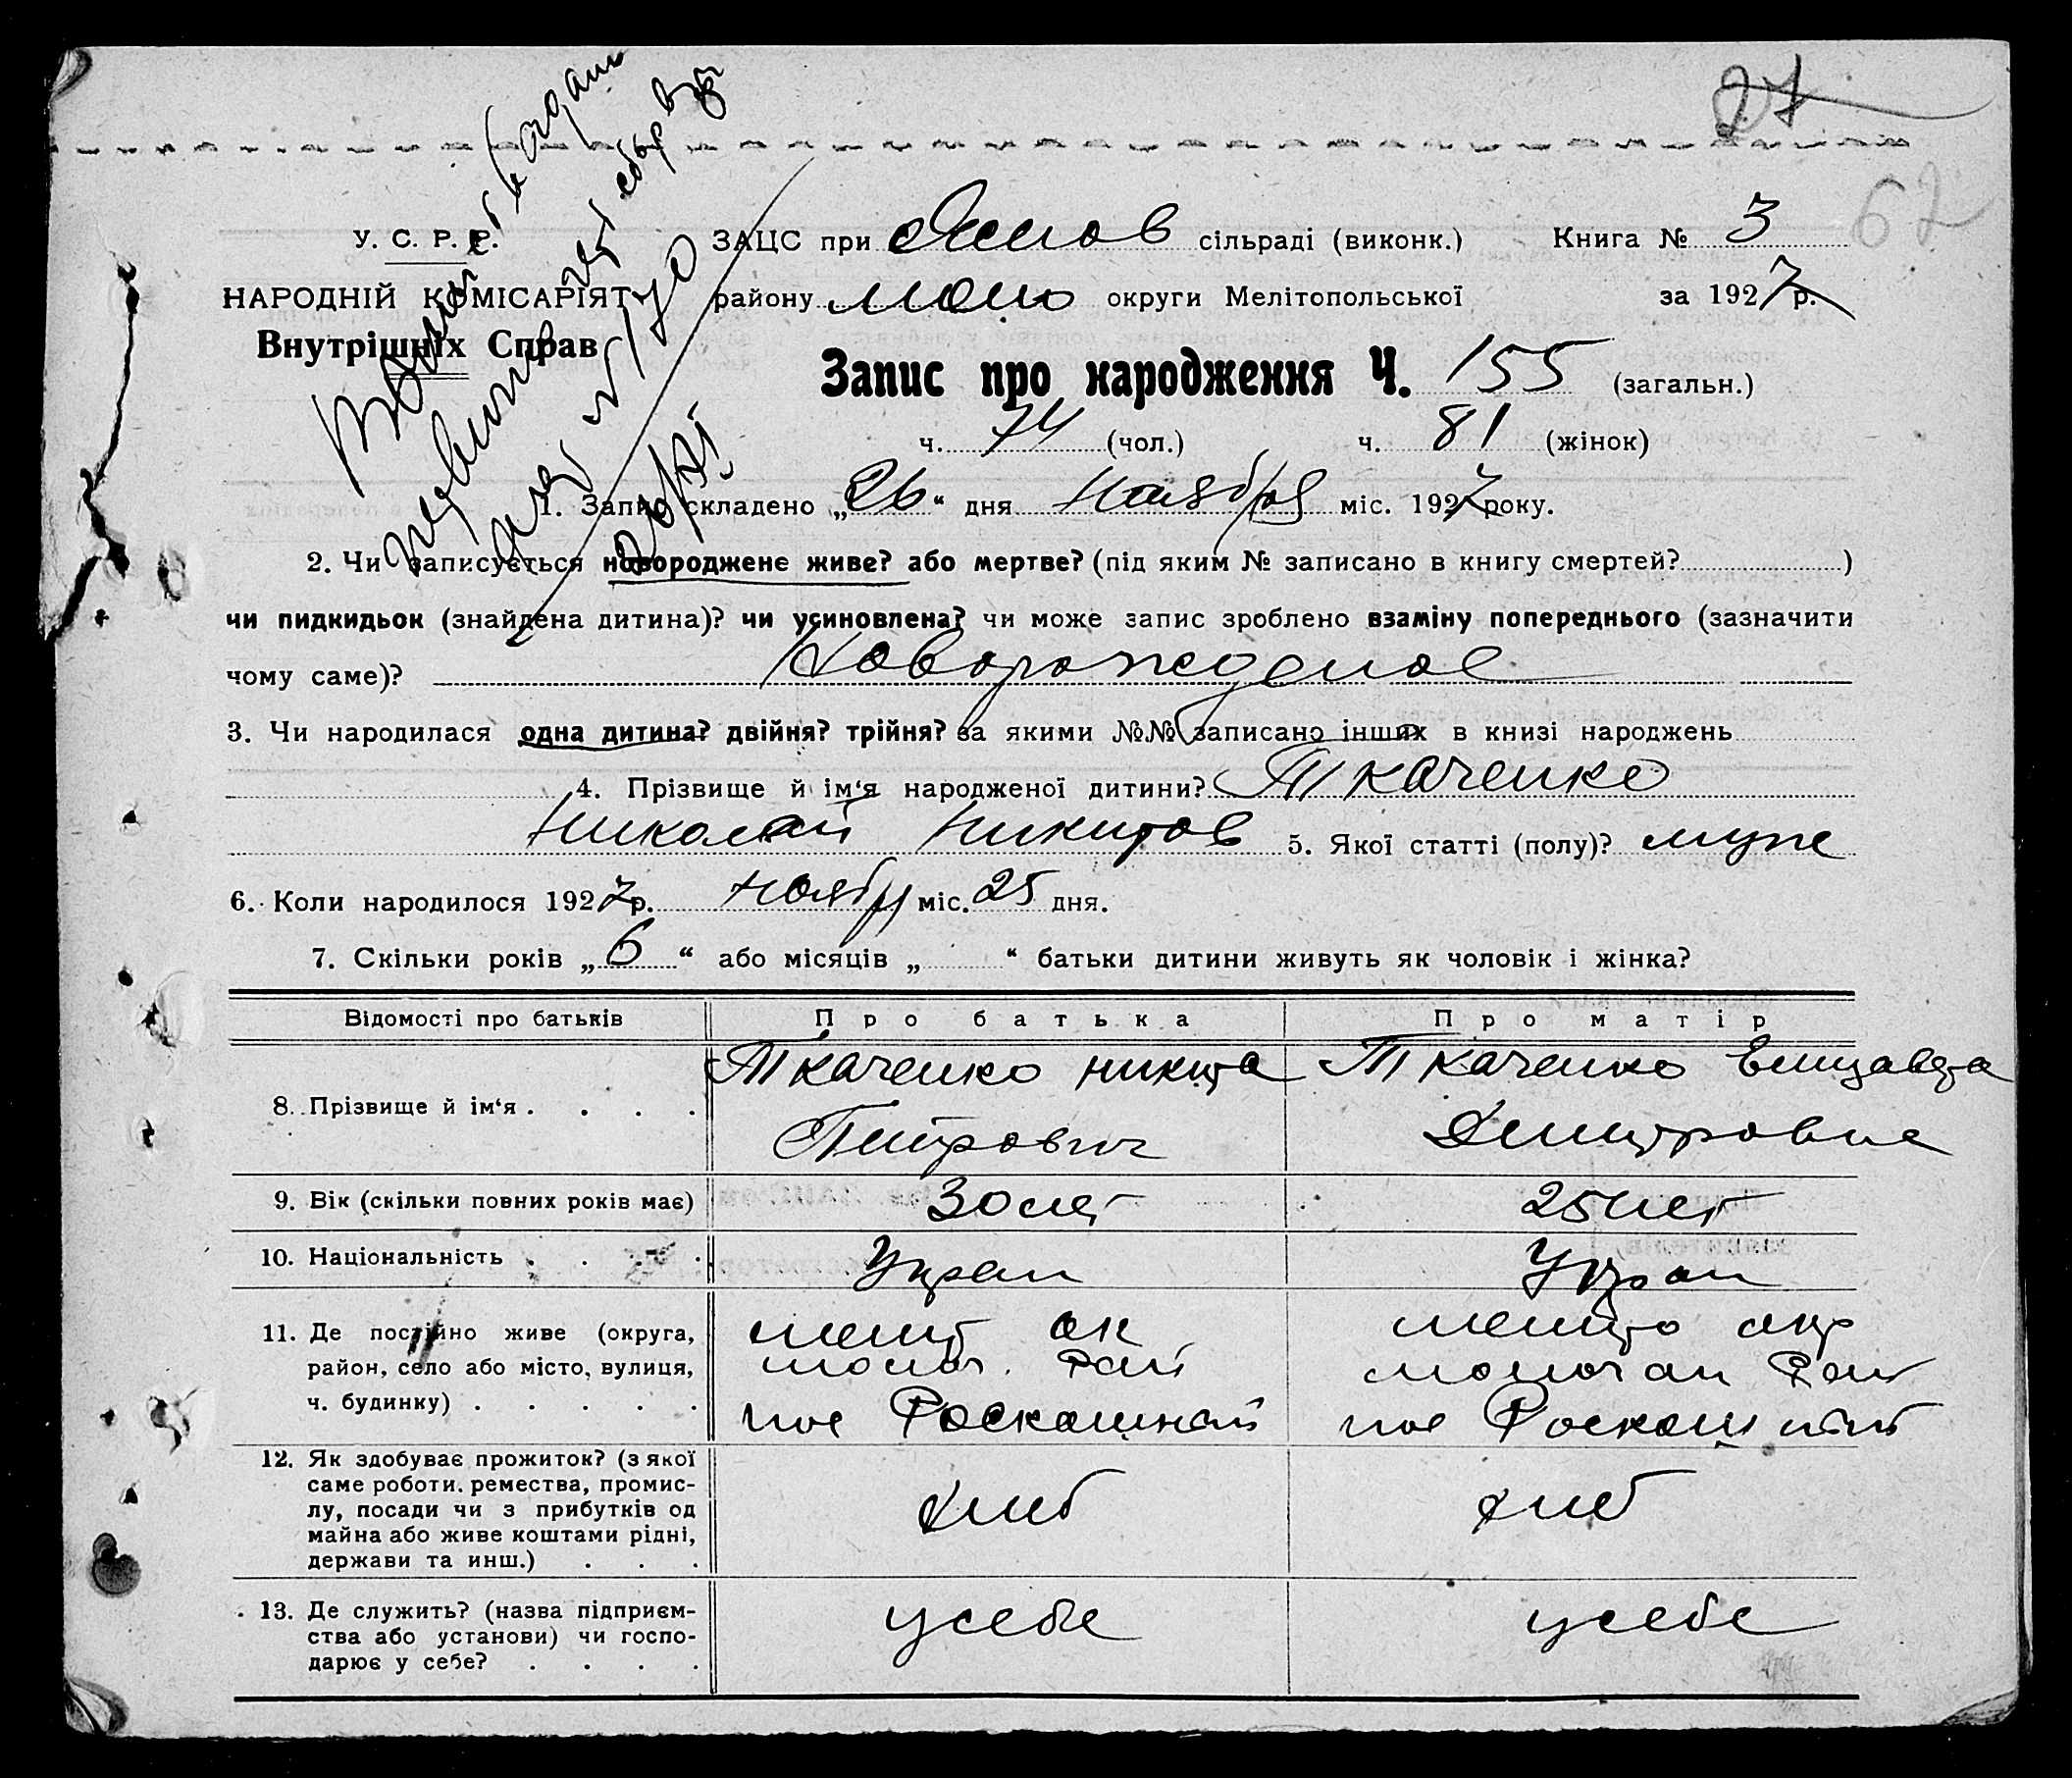 27
62
У. С. Р. Р.
НАРОДНІЙ КОМІСАРІЯТ
Внутрішніх Справ
ЗАЦС при сільраді (виконк.) Книга № 3
району округи Мелітопольської за 1927 р.
Запис про народження Ч. 155 (загальн.)
ч. 74 (чол.) ч. 81 (жінок)
1. Запис складено „26“ дня Ноября міс. 1927 року.
2. Чи записується новороджене живе? або мертве? (під яким № записано в книгу смертей? )
чи пидкидьок (знайдена дитина)? чи усиновлена? чи може запис зроблено взаміну попереднього (зазначити
чому саме)? Новорожденое
3. Чи народилася одна дитина? двійня? трійня? за якими №№ записано інших в книзі народжень
4. Прізвище й ім‘я народженої дитини? Ткаченко
Николай Никитов 5. Якої статті (полу)? муже
6. Коли народилося 1927 р. Ноябр міс. 25 дня.
7. Скільки років „6“ або місяців „ “ батьки дитини живуть як чоловік і жінка?
Відомості про батьків Про батька Про матір
8. Прізвище й ім‘я . . . . Ткаченко Никита Ткаченко Елизавета
Питрович Дмитровна
9. Вік (скільки повних років має) 30 лет 25 лет
10. Національність . . . . Укран Укран
11. Де постійно живе (округа, район, село або місто, вулиця, ч. будинку) . . . . . мелит ок мелито окр
молоч. Рай молочан Рай
пос Роскошний пос Роскошний
12. Як здобуває прожиток? (з якої саме роботи, ремества, промислу, посади чи з прибутків од майна або живе коштами рідні, держави та инш.) . . . хлеб хлеб
13. Де служить? (назва підприємства або установи) чи господарює у себе? . . . . у себе у себе